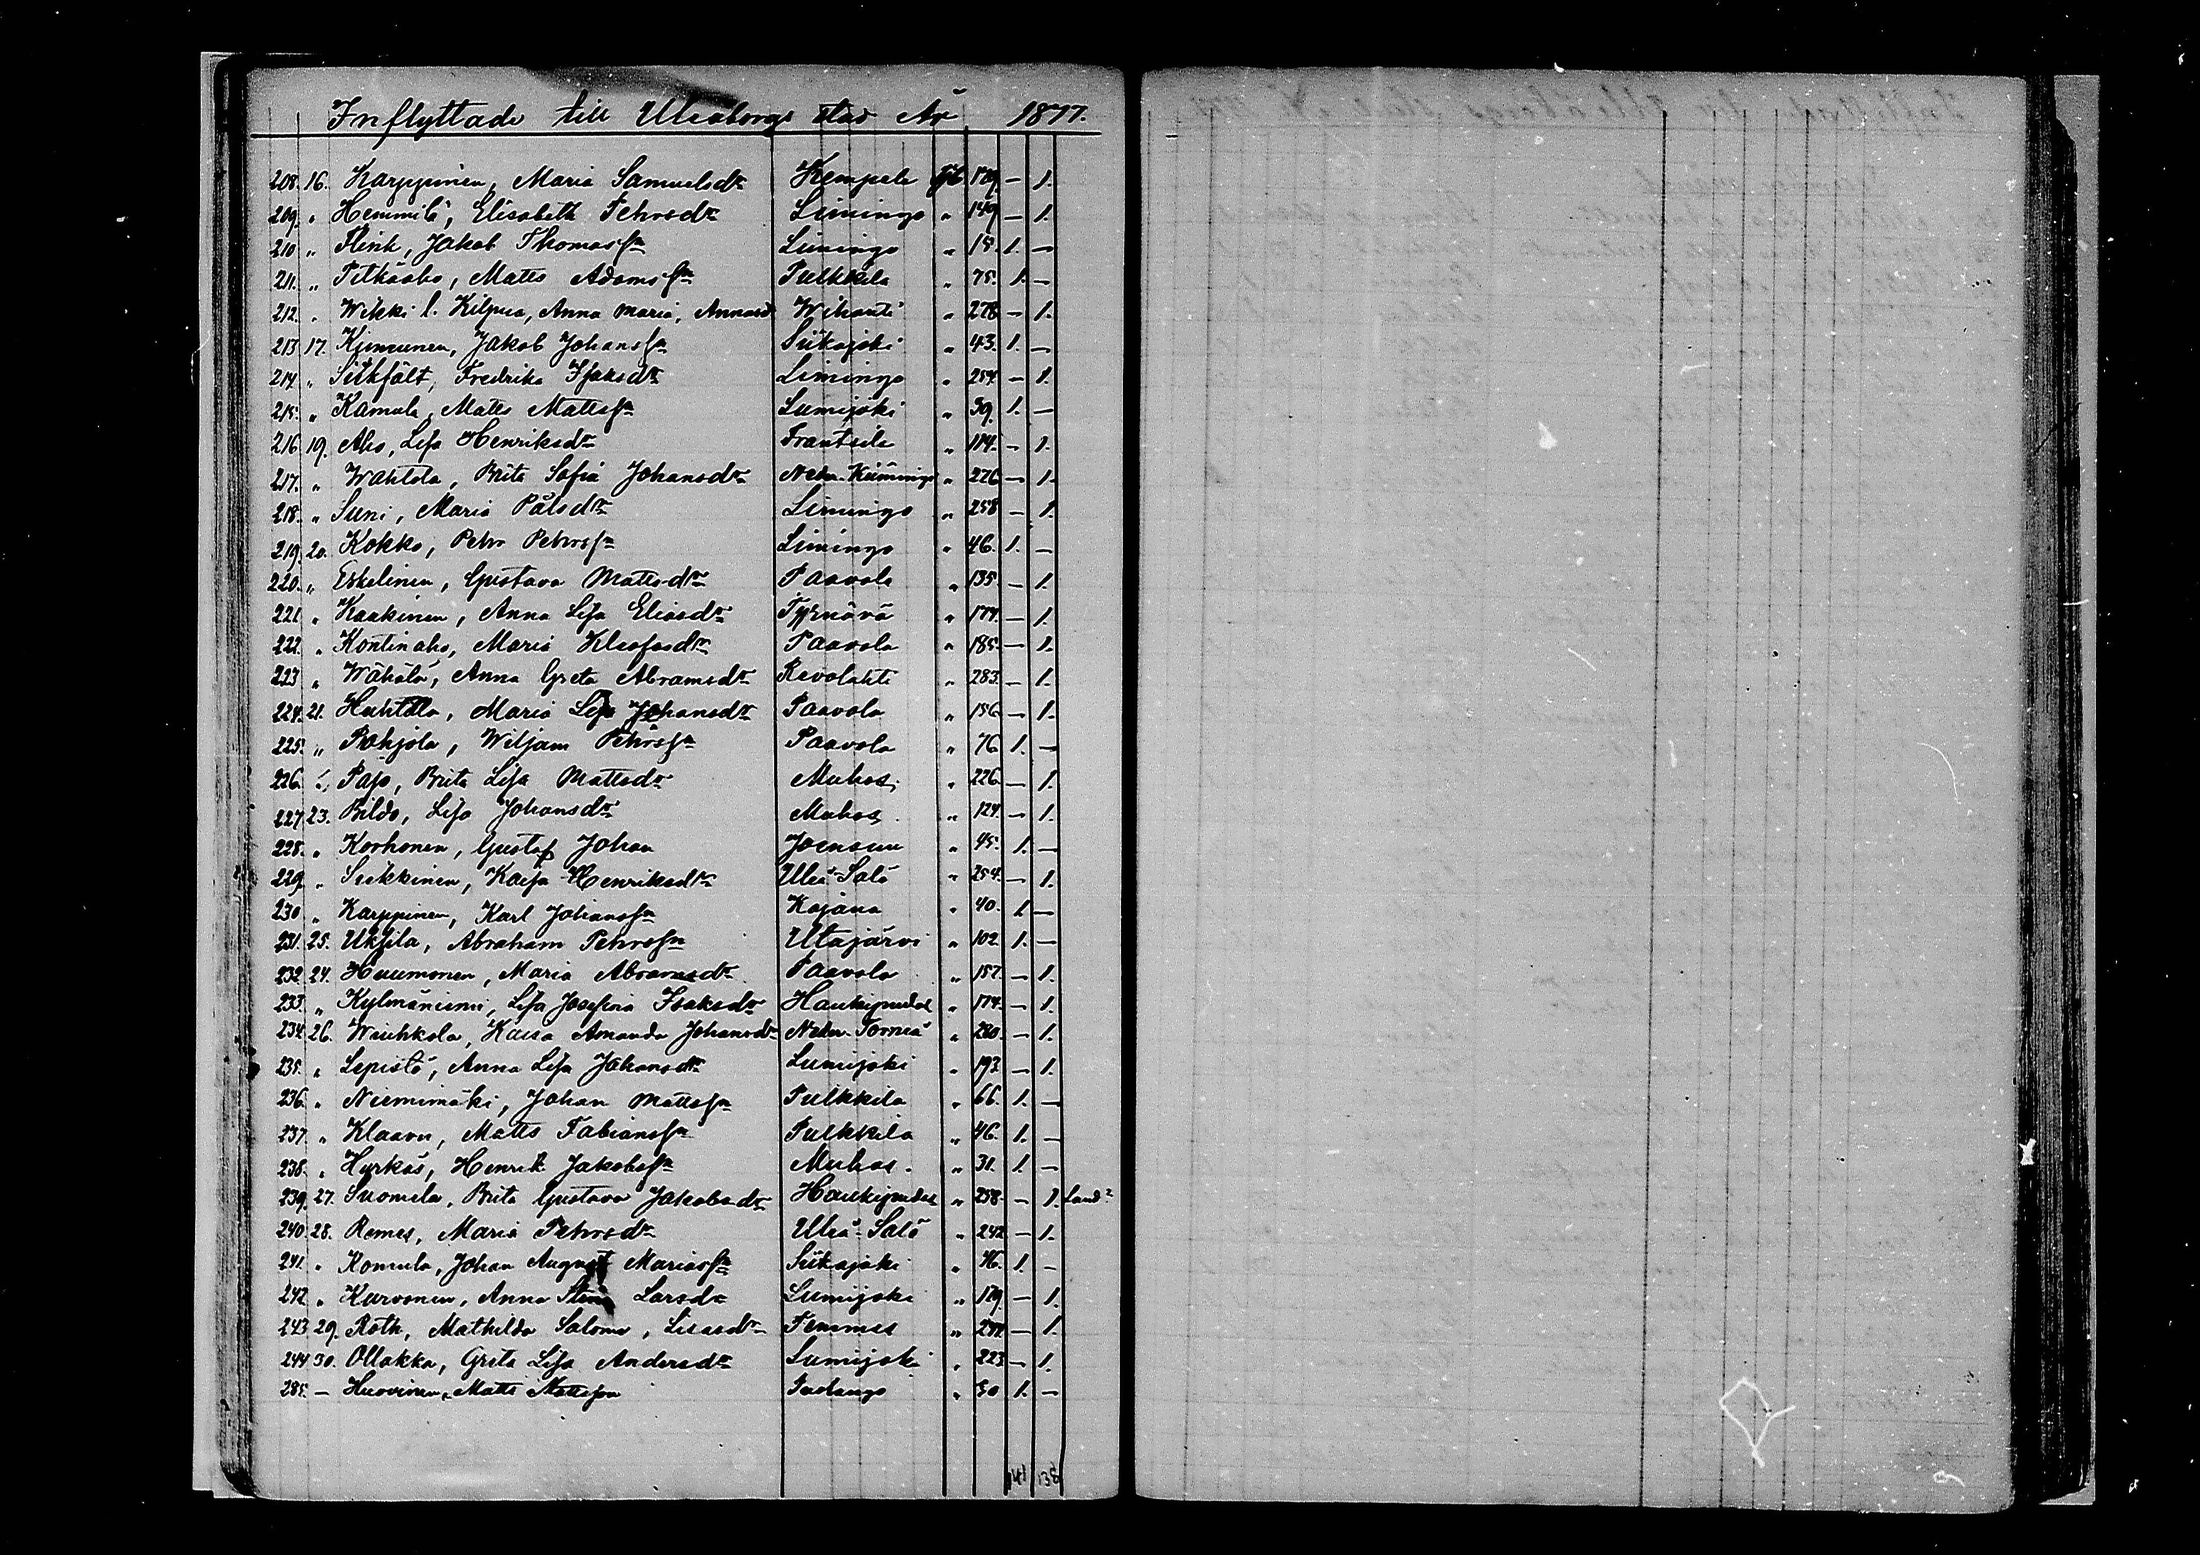 Inflyttade till Uleåborgs stad År 1877.
208. 16. Karppinen, Maria Samuelsdr Kempele 179. — 1.
209. „ Hemmilä, Elisabeth Pehrsdr Limingo „ 149 — 1.
210 „ Flink, Jakob Thomass:n Limingo „ 15. 1. —
211. „ Pitkäaho, Matts Adams:n Pulkkila „ 75. 1. —
212. „ Wikki l. Kilpua, Anna Maria, Annasd Wihanti „ 278 — 1.
213 17. Kinnunen, Jakob Johans:n Siikajoki „ 43. 1. —
214. „ Silkfält, Fredrika Isaksdr Limingo „ 254. — 1.
215. „ Kamula, Matts Matts:n Lumijoki „ 39. 1. —
216 19. Aho, Lisa Henriksdr Frantsila „ 114. — 1.
217. „ Wahtola, Brita Sofia Johansdr Neder-Kiiminge „ 276 — 1.
218. „ Suni, Maria Pålsdr Limingo „ 258 — 1.
219. 20. Kokko, Pehr Pehrs:n Limingo „ 46. 1. —
220. „ Eskelinen, Gustava Mattsdr Paavola „ 135. — 1.
221. „ Kaakinen, Anna Lisa Eliasdr Tyrnävä „ 177. — 1.
222. „ Kontinaho, Maria Kleofasdr Paavola „ 185. — 1.
223 „ Wähälä, Anna Greta Abramsdr Revolahti „ 283. — 1.
224. 21. Huhtala, Maria Lisa Johansdr Paavola „ 156. — 1.
225. „ Pohjola, Wiljam Pehrs:n Paavola „ 76 1. —
226. „ Paso, Brita Lisa Mattsdr Muhos. „ 226. — 1.
227. 23. Bildo, Lisa Johansdr Muhos. „ 124. — 1.
228. „ Korhonen, Gustaf Johan Joensuu „ 45. 1. —
229. „ Suikkinen, Kaisa Henriksdr Uleå-Salo „ 254. — 1.
230 „ Karppinen, Karl Johans:n Kajana „ 40. 1. —
231. 25. Uksila, Abraham Pehrs:n Utajärvi „ 102. 1. —
232. 24. Huumonen, Maria Abramsdr Paavola „ 157. — 1.
233. „ Kylmäniemi, Lisa Josefina Isaksdr Haukipudas „ 174. — 1.
234 26. Wauhkola, Kaisa Amanda Johansdr Neder-Torneå „ 280 — 1.
235. „ Lepistö, Anna Lisa Johansdr Lumijoki „ 193. — 1.
236. „ Niemimäki, Johan Matts:n Pulkkila „ 66. 1. —
237. „ Klaavu, Matts Fabians:n Pulkkila „ 46. 1. —
238. „ Hyrkäs, Henrik Jakobs:n Muhos. „ 31. 1. —
239. 27. Suomela, Brita Gustava Jakobsdr Haukipudas „ 258. — 1.
240. 28. Remes, Maria Pehrsdr Uleå-Salo „ 242 — 1.
241. „ Komula, Johan August Marias:n Siikajoki „ 46. 1. —
242. „ Karvonen, Anna Stina Larsdr Lumijoki „ 179 — 1.
243 29. Roth, Mathilda Salome, Lisasdr Temmes „ — 1.
244 30. Ollakka, Greta Lisa Andersdr Lumijoki „ 223 — 1.
285. — Huovinen, Matts Mattsson Pudasjo „ 30 1. —
141 138